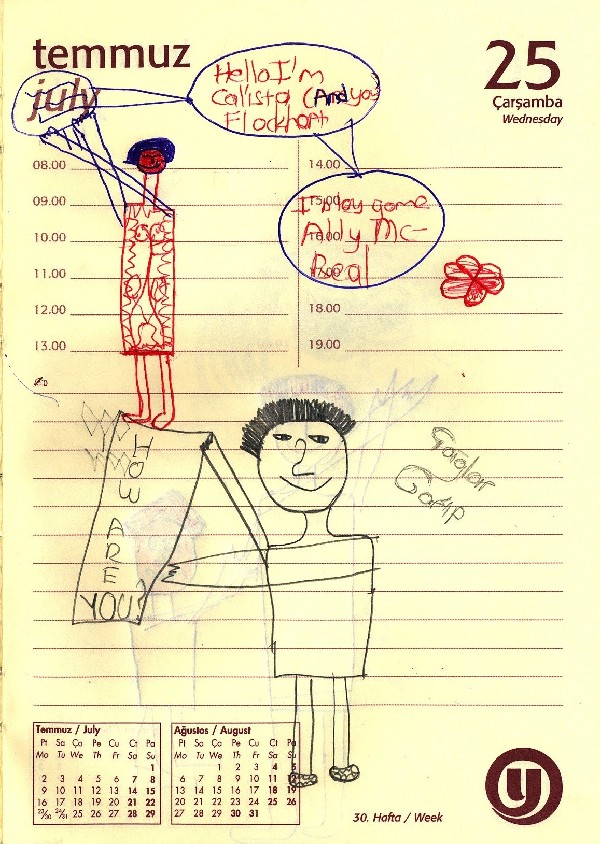 temmuz
july
25
Çarşamba
Wednesday
Hello I'm
Calista (And you
Flockhart
I play game
Ally Mc-
Beal
08.00
09.00
10.00
11.00
12.00
13.00
14.00
15.00
16.00
17.00
18.00
19.00
HOW
ARE
YOU?
Temmuz / July
Pt Sa Ça Pe Cu Ct Pa
Mo Tu We Th Fr Sa Su
1
2 3 4 5 6 7 8
9 10 11 12 13 14 15
16 17 18 19 20 21 22
23/30 24/31 25 26 27 28 29
Ağustos / August
Pt Sa Ça Pe Cu Ct Pa
Mo Tu We Th Fr Sa Su
1 2 3 4 5
6 7 8 9 10 11 12
13 14 15 16 17 18 19
20 21 22 23 24 25 26
27 28 29 30 31
30. Hafta / Week
y